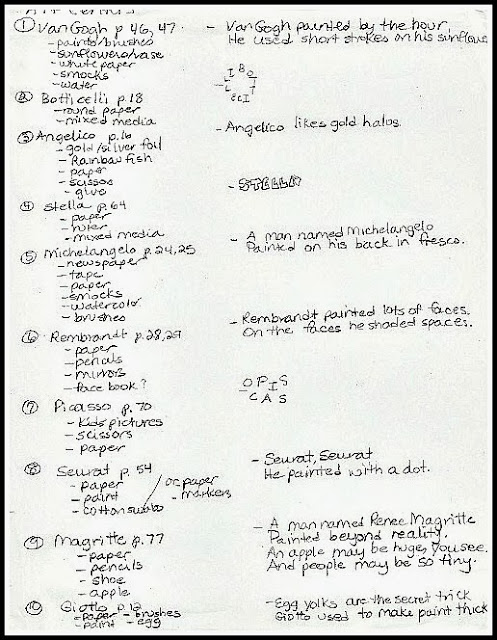 Art Centers
① Van Gogh p 46, 47
- paints/brushes
- sunflowers/vase
- white paper
- smocks
- water
- Van Gogh painted by the hour,
He used short strokes on his sunflows
② Botticelli p.18
- round paper
- mixed media
- BOTTICELLI
③ Angelico p.16
- gold/silver foil
- Rainbow fish
- paper
- scissos
- glue
- Angelico likes gold halos.
④ Stella p.64
- paper
- ruler
- mixed media
- STELLA
⑤ Michelangelo p.24,25
- newspaper
- tape
- paper
- smocks
- watercolor
- brushes
- A man named Michelangelo
Painted on his back in fresco.
⑥ Rembrandt p.28,29
- paper
- pencils
- mirrors
- face book?
- Rembrandt painted lots of faces.
On the faces he shaded spaces.
⑦ Picasso p. 70
- kids pictures
- scissors
- paper
- OPIS
CAS
⑧ Seurat p. 54
- paper
- paint
- cotton swabs
/ or paper
- markers
- Seurat, Seurat
He painted with a dot.
⑨ Magritte p.77
- paper
- pencils
- shoe
- apple
- A man named Renee Magritte
Painted beyond reality.
An apple may be huge, you see.
And people may be so tiny.
⑩ Giotto p.12
- paper - brushes
- paint - egg
- Egg yolks are the secret trick
Giotto used to make paint thick